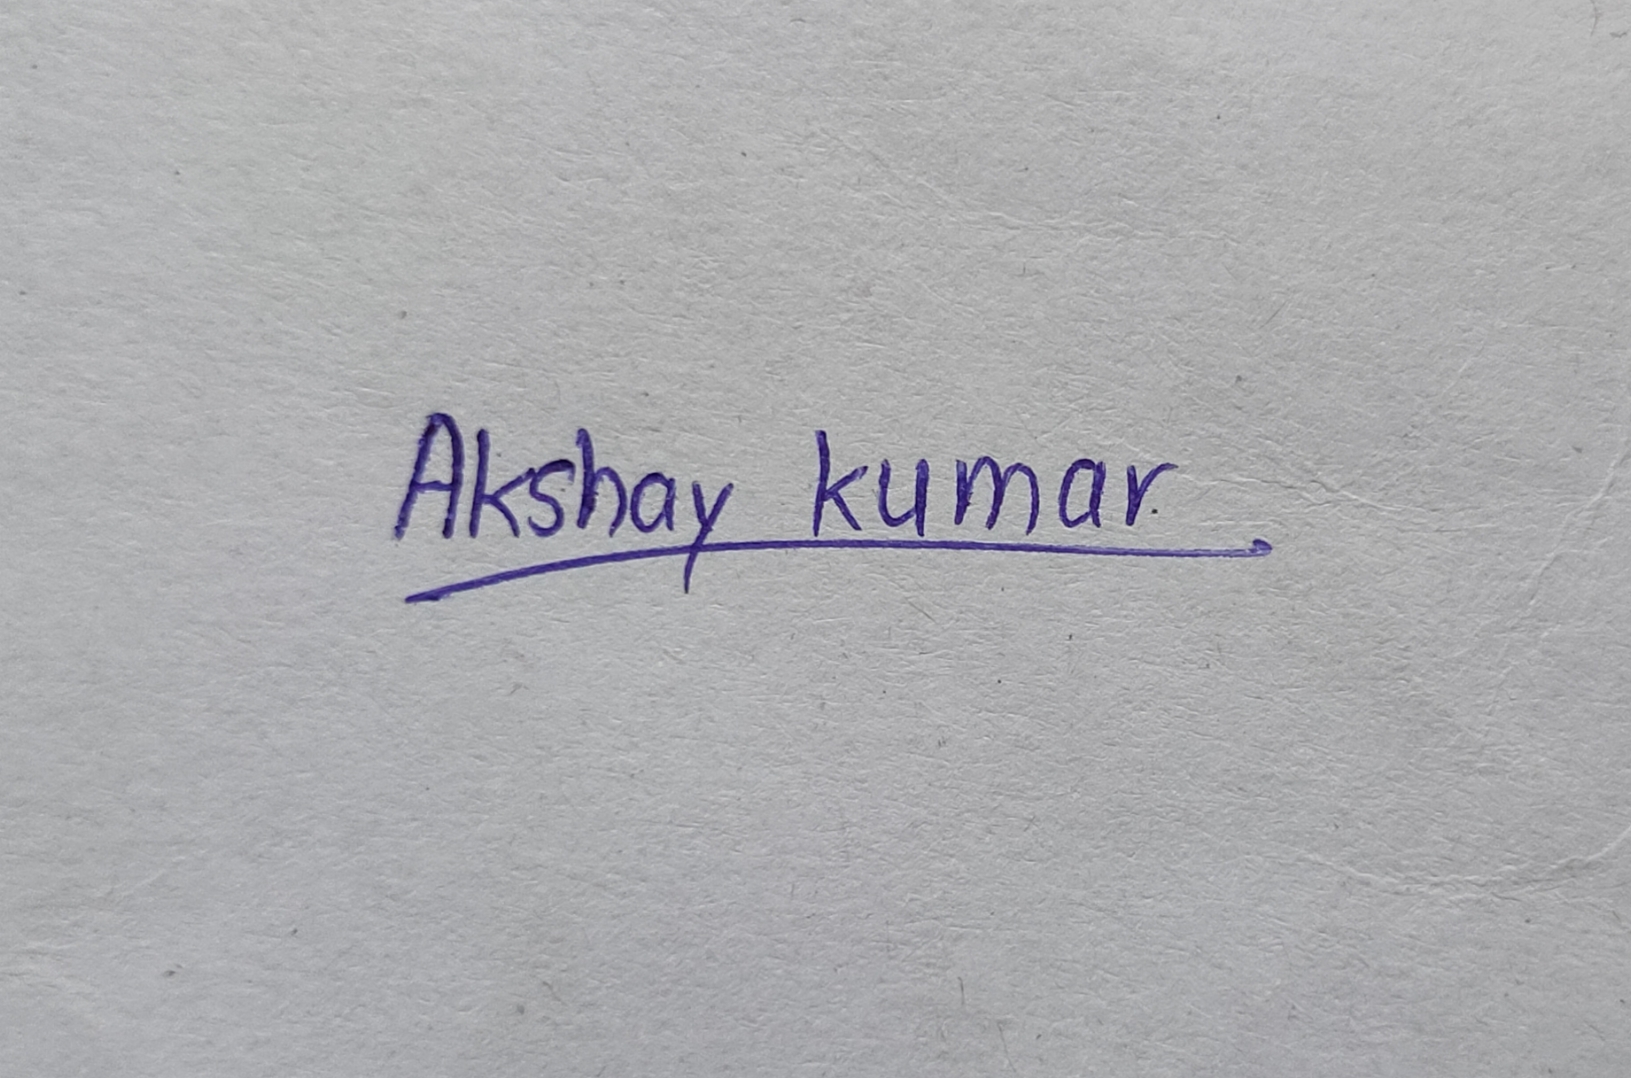 Akshay kumar